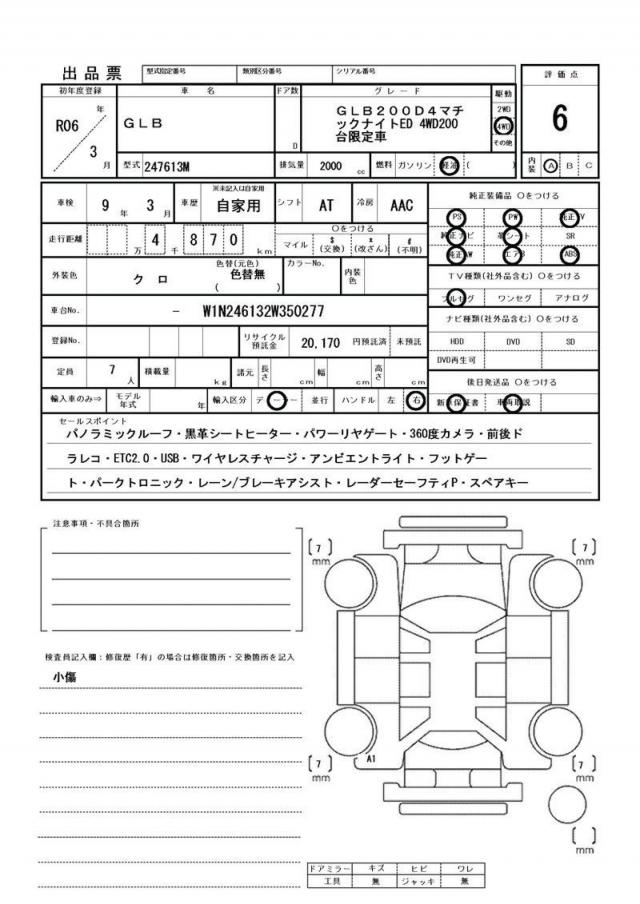 出品票 型式指定番号 類別区分番号 シリアル番号 評価点
初年度登録 車名 ドア数 グレード 駆動
R06 年 GLB D GLB200D4マチ 2WD 6
ックナイトED 4WD200 4WD
台限定車 その他
3 月 型式 247613M 排気量 2000 cc 燃料 ガソリン 軽油 ( ) 内装 A B C
車検 9 年 3 月 車歴 ※未記入は自家用 自家用 シフト AT 冷房 AAC 純正装備品 ○をつける
PS PW 純正TV
走行距離 万 4 千 870 km ○をつける マイル $ (交換) x (改ざん) # (不明) 純正ナビ 革シート SR
純正AW エアB ABS
外装色 クロ 色替(元色) 色替無 ( ) カラーNo. 内装色 TV種類(社外品含む) ○をつける
フルセグ ワンセグ アナログ
車台No. - W1N246132W350277 ナビ種類(社外品含む) ○をつける
登録No. リサイクル預託金 20,170 円預託済 未預託 HDD DVD SD
DVD再生可
定員 7 人 積載量 kg 諸元 長さ cm 幅 cm 高さ cm 後日発送品 ○をつける
輸入車のみ⇒ モデル年式 年 輸入区分 ディーラー 並行 ハンドル 左 右 新車保証書 車両取説
セールスポイント
パノラミックルーフ・黒革シートヒーター・パワーリヤゲート・360度カメラ・前後ド
ラレコ・ETC2.0・USB・ワイヤレスチャージ・アンビエントライト・フットゲー
ト・パークトロニック・レーン/ブレーキアシスト・レーダーセーフティP・スペアキー
注意事項・不具合箇所
[7] mm [7] mm
検査員記入欄:修復歴「有」の場合は修復箇所・交換箇所を記入
小傷
A1
[7] mm [7] mm
[ ] mm
ドアミラー キズ ヒビ ワレ
工具 無 ジャッキ 無